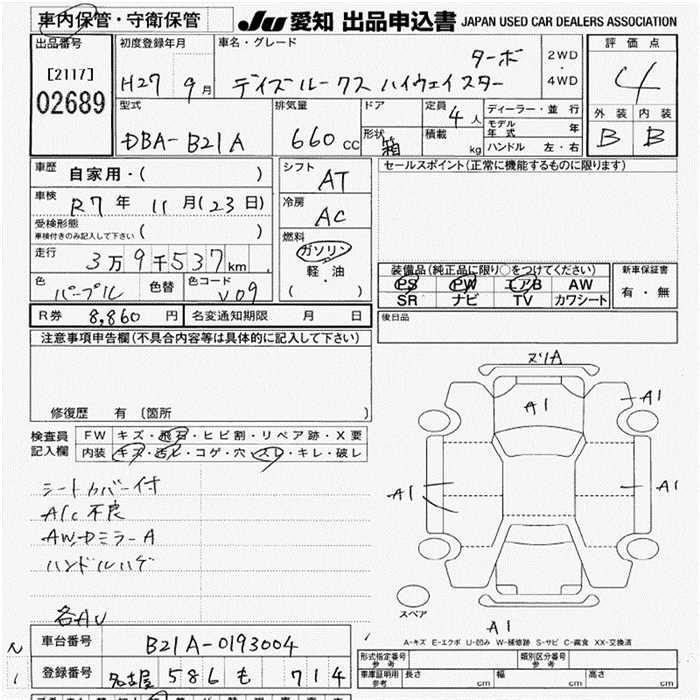 車内保管・守衛保管 JU 愛知 出品申込書 JAPAN USED CAR DEALERS ASSOCIATION
出品番号 初度登録年月 車名・グレード 評価点
[2117] ターボ 2WD
02689 H27 9月 デイズルークス ハイウェイスター ・ 4
4WD
型式 排気量 ドア 定員 4人 ディーラー・並行 外装 内装
DBA-B21A 660cc 形状 箱 積載 kg モデル年式 年 B B
ハンドル 左・右
車歴 自家用・( ) シフト AT セールスポイント(正常に機能するものに限ります)
車検 R7年 11月(23日) 冷房 AC
受検形態
車検付きのみ記入して下さい ( ) 燃料
走行 3万9千537km ガソリン
軽・油
( ・ )
装備品(純正品に限り○をつけてください) 新車保証書
色 パープル 色替 色コード V09 PS PW エアB AW 有・無
SR ナビ TV カワシート
R券 8,860円 名変通知期限 月 日 後日品
注意事項申告欄(不具合内容等は具体的に記入して下さい)
修復歴 有 〔箇所 〕
ヌリA
A1 A1
検査員 FW キズ・飛石・ヒビ割・リペア跡・X要
記入欄 内装 キズ・汚レ・コゲ・穴・スレ・キレ・破レ
A1 A1
シートカバー付
A/C不良
AW、Dミラ-A
ハンドルハゲ
各AU
スペア
A1
A-キズ E-エクボ U-凹み W-補修跡 S-サビ C-腐食 XX-交換済
車台番号 B21A-0193004
登録番号 名古屋 586 も 714
形式指定番号 参考 類別区分番号 参考
車庫証明用 参考 長さ cm 幅 cm 高さ cm